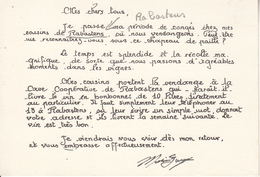 Mes chers tous.
Rabastens
Je passe ma période de congés chez mes
cousins de Rabastens, où nous vendangeons. Peut être
me reconnaîtrez-vous sous ce chapeau de paille ?
Le temps est splendide et la récolte ma-
gnifique, de sorte que nous passons d'agréables
moments dans les vignes.
Mes cousins portent la vendange à la
Cave Coopérative de Rabastens qui, paraît-il,
livre le vin en bonbonnes de 10 litres directement
au particulier. Il faut simplement leur téléphoner au
13 à Rabastens, ou leur écrire un simple mot, donnant
votre adresse et ils livrent la semaine suivante. Le
vin est très bon.
Je viendrais vous voir dès mon retour,
et vous embrasse affectueusement.